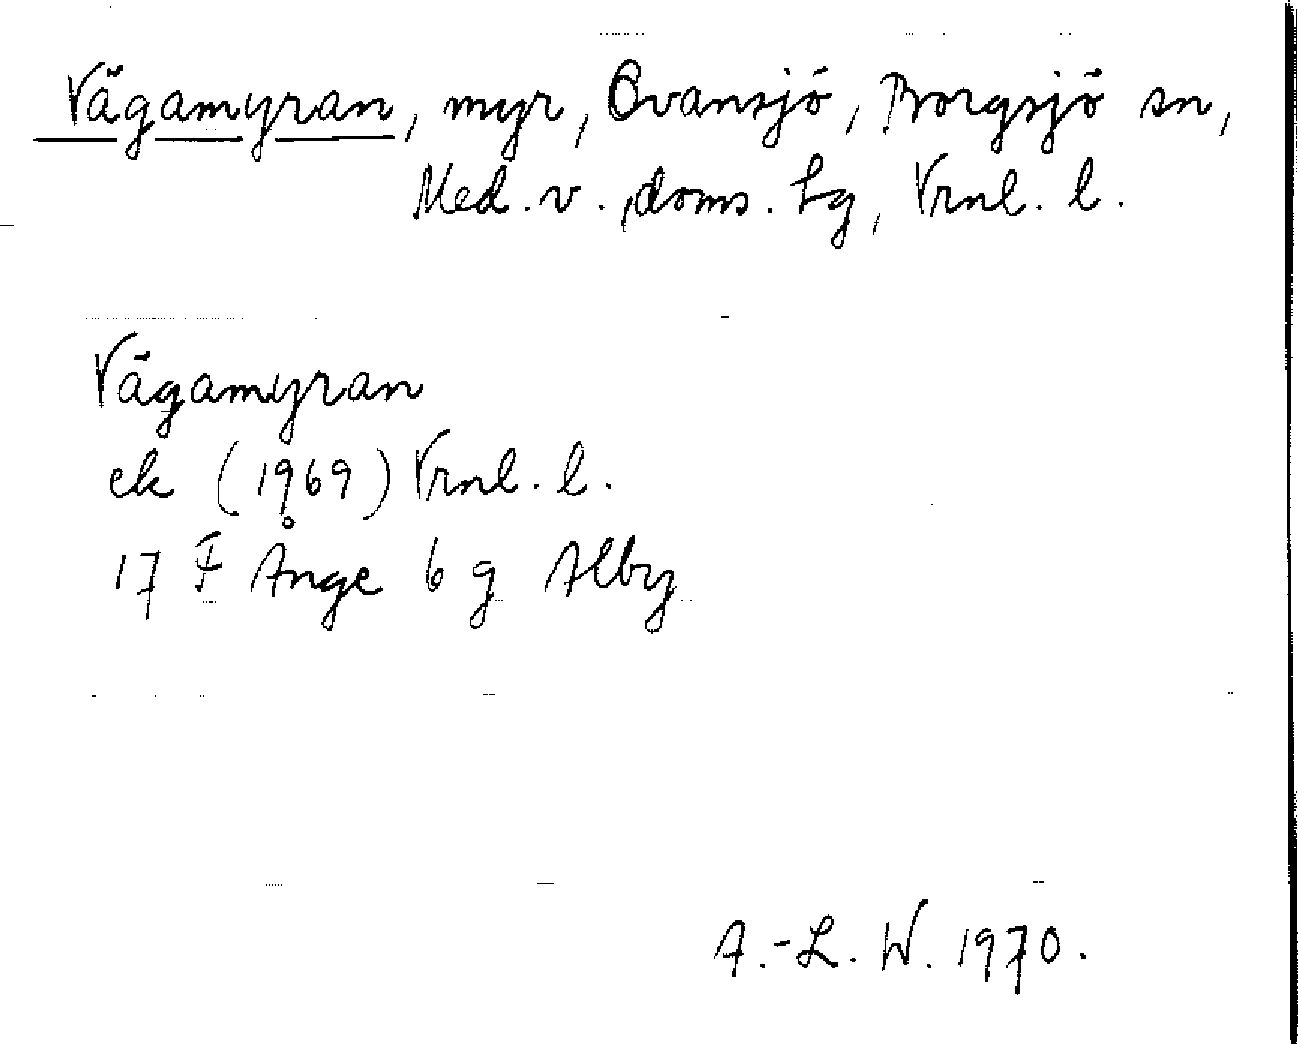 Vägamyran, myr, Ovansjö, Borgsjö sn,
Med. v. doms. tg, Vrnl. l.
Vägamyran
ek (1969) Vrnl. l.
17 F Ånge 6 g Alby
A.-L. W. 1970.